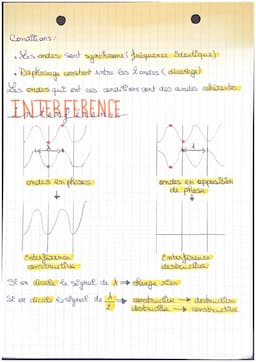 Conditions :
• Les ondes sont synchrones ( fréquence identique )
• Déphasage constant entre les 2 ondes ( décalage )
Les ondes qui ont ces conditions sont des ondes cohérentes.
INTERFERENCE
Interférence
λ
λ
ondes en phases
ondes en opposition
de phase
Interférence
constructive
Interférence
destructive
Si on décale le signal de λ ⇒ change rien
Si on décale le signal de λ/2 ⇒ constructive → destructive
destructive → constructive